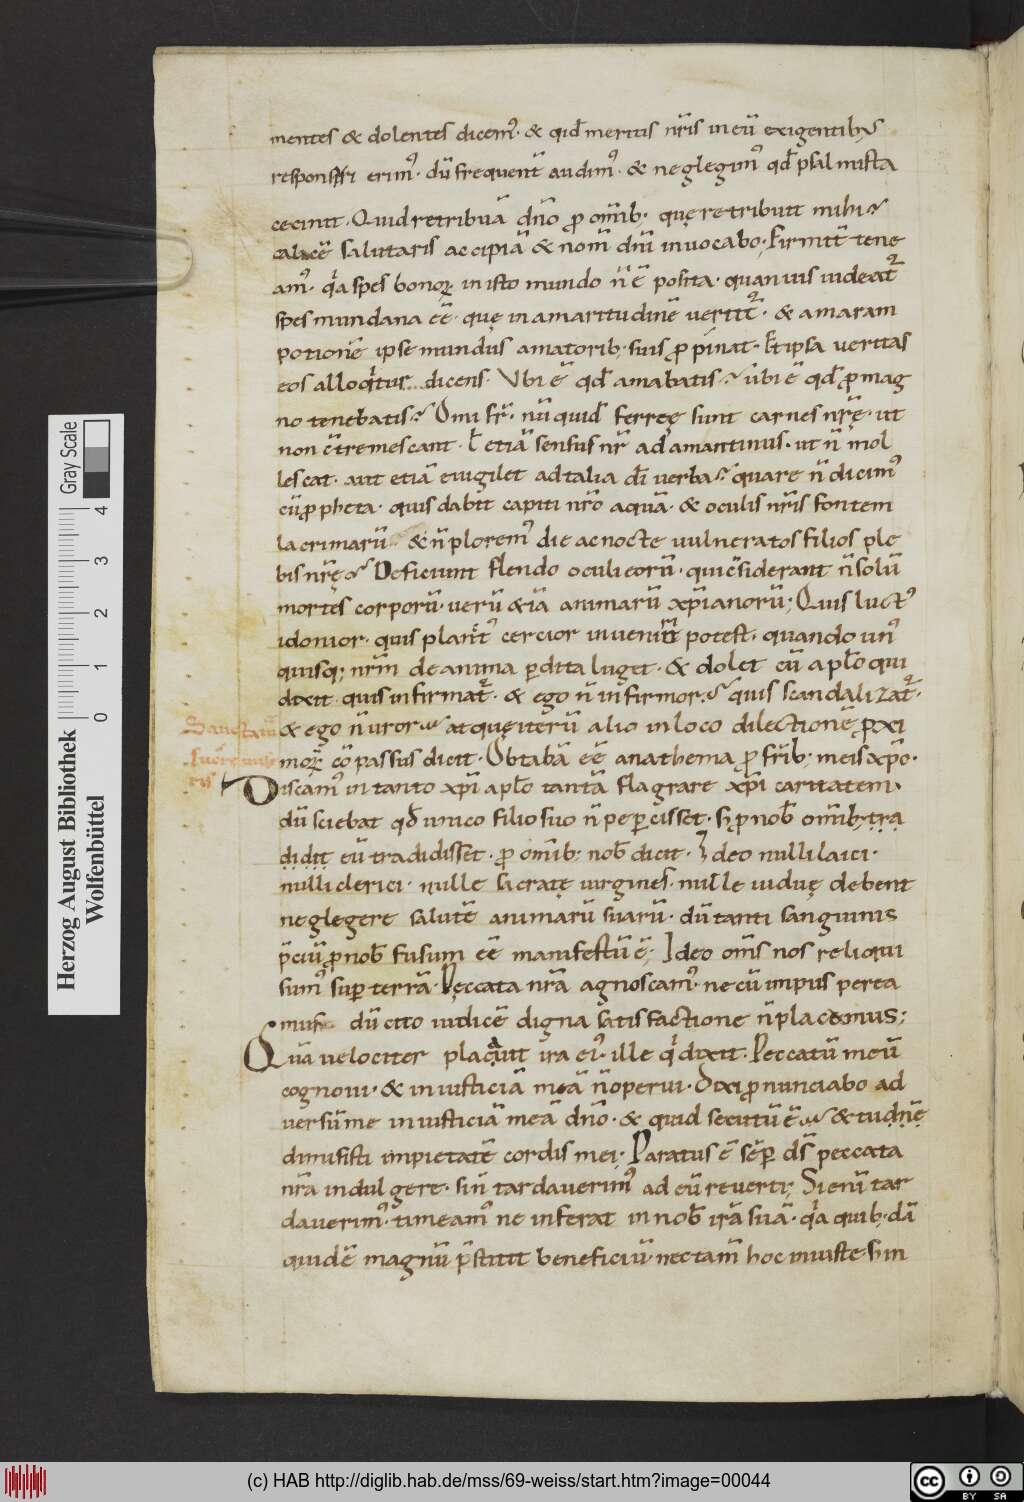 mentes & dolentes dicem᾽· & qid̄ meritis nr̄is in eū exigentib᾽
responsuri erim᾽· dū frequent̄ audim᾽· & neglegim᾽ qd̄ psalmista
cecinit· Quid retribuā dn̄o ꝓ om̄ib· quę retribuit mihi?
calicē salutaris accipiā & nom̄ dn̄i inuocabo; Firmit̄ tene
am᾽· qͣa spes bonoꝝ in isto mundo n̄ ē posita· quamuis uideat᷑
spes mundana eē· quę in amaritudinē uertit᷑· & amaram
potionē ipse mundus amatorib; suis ꝓpinat· Et ipsa ueritas
eos alloqͥtur dicens· Vbi ē qd̄ amabatis? ubi ē qd̄ ꝓ mag
no tenebatis? Om̄i fr̄· nū quid ferreę sunt carnes nr̄ę· ut
non c̄tremescant· ł etiā sensus nr̄ adamantinus· ut n̄ mol
lescat· aut etiā euigilet ad talia dī uerba? quare n̄ dicim᾽
cū ꝓpheta· quis dabit capiti nr̄o aquā· & oculis nr̄is fontem
lacrimarū & n̄ plorem᾽ die ac nocte uulneratos filios ple
bis nr̄ę? Deficiunt flendo oculi eorū· qui c̄siderant n̄ solū
mortes corporū· uerū & iā animarū xp̄ianorū; Quis luct᾽
idonior· quis planct᾽ cercior inueniri potest· quando un᾽
quisq; nr̄m de anima ꝑdita luget· & dolet cū aplo qui
dixit quis infirmat᷑· & ego n̄ infirmor? quis scandalizat᷑·
& ego n̄ uror? atque iterū alio in loco dilectionē ꝓxi
moꝝ cōpassus dicit· Obtabā eē anathema ꝓ frīb; meis xp̄o·
Discam᾽ in tanto xp̄i aplo tantā flagrare xp̄i caritatem·
dū sciebat qd̄ unico filio suo n̄ peꝑcisset· s; ꝓ nob̄ om̄ib; tra
didit eū tradidisset· ꝓ om̄ib; nob̄ dicit· Ideo nulli laici·
nulli clerici· nulle sacratę uirgines· nulle uiduę debent
neglegere salutē animarū suarū· dū tanti sanguinis
p̄ciū ꝓ nob̄ fusum eē manifestū ē; Ideo om̄s nos reliqui
sum᾽ suꝑ terrā· Peccata nr̄a agnoscam᾽· ne cū impiis perea
mus dū cito iudicē digna satisfactione n̄ placemus;
Quā uelociter placauit ira ei᾽· ille qͥ dixit· Peccatū meū
cognoui· & iniusticiā meā n̄ operui· Dixi ꝓnunciabo ad
uersū me iniusticiā meā dn̄o· & quid secutū ē? & tu dn̄ę
dimisisti impietatē cordis mei; Paratus ē sēꝑ ds̄ peccata
nr̄a indulgere· si n̄ tardauerim᾽ ad eū reuerti; Si enī tar
dauerim᾽· timeam᾽ ne inferat in nob̄ irā suā· qͣa quib; dā
quidē magnū p̄stitit beneficiū· nec tam̄ hoc iniuste· s; in
Herzog August Bibliothek
Wolfenbüttel
Gray Scale
0 1 2 3 4
(c) HAB http://diglib.hab.de/mss/69-weiss/start.htm?image=00044
cc BY SA